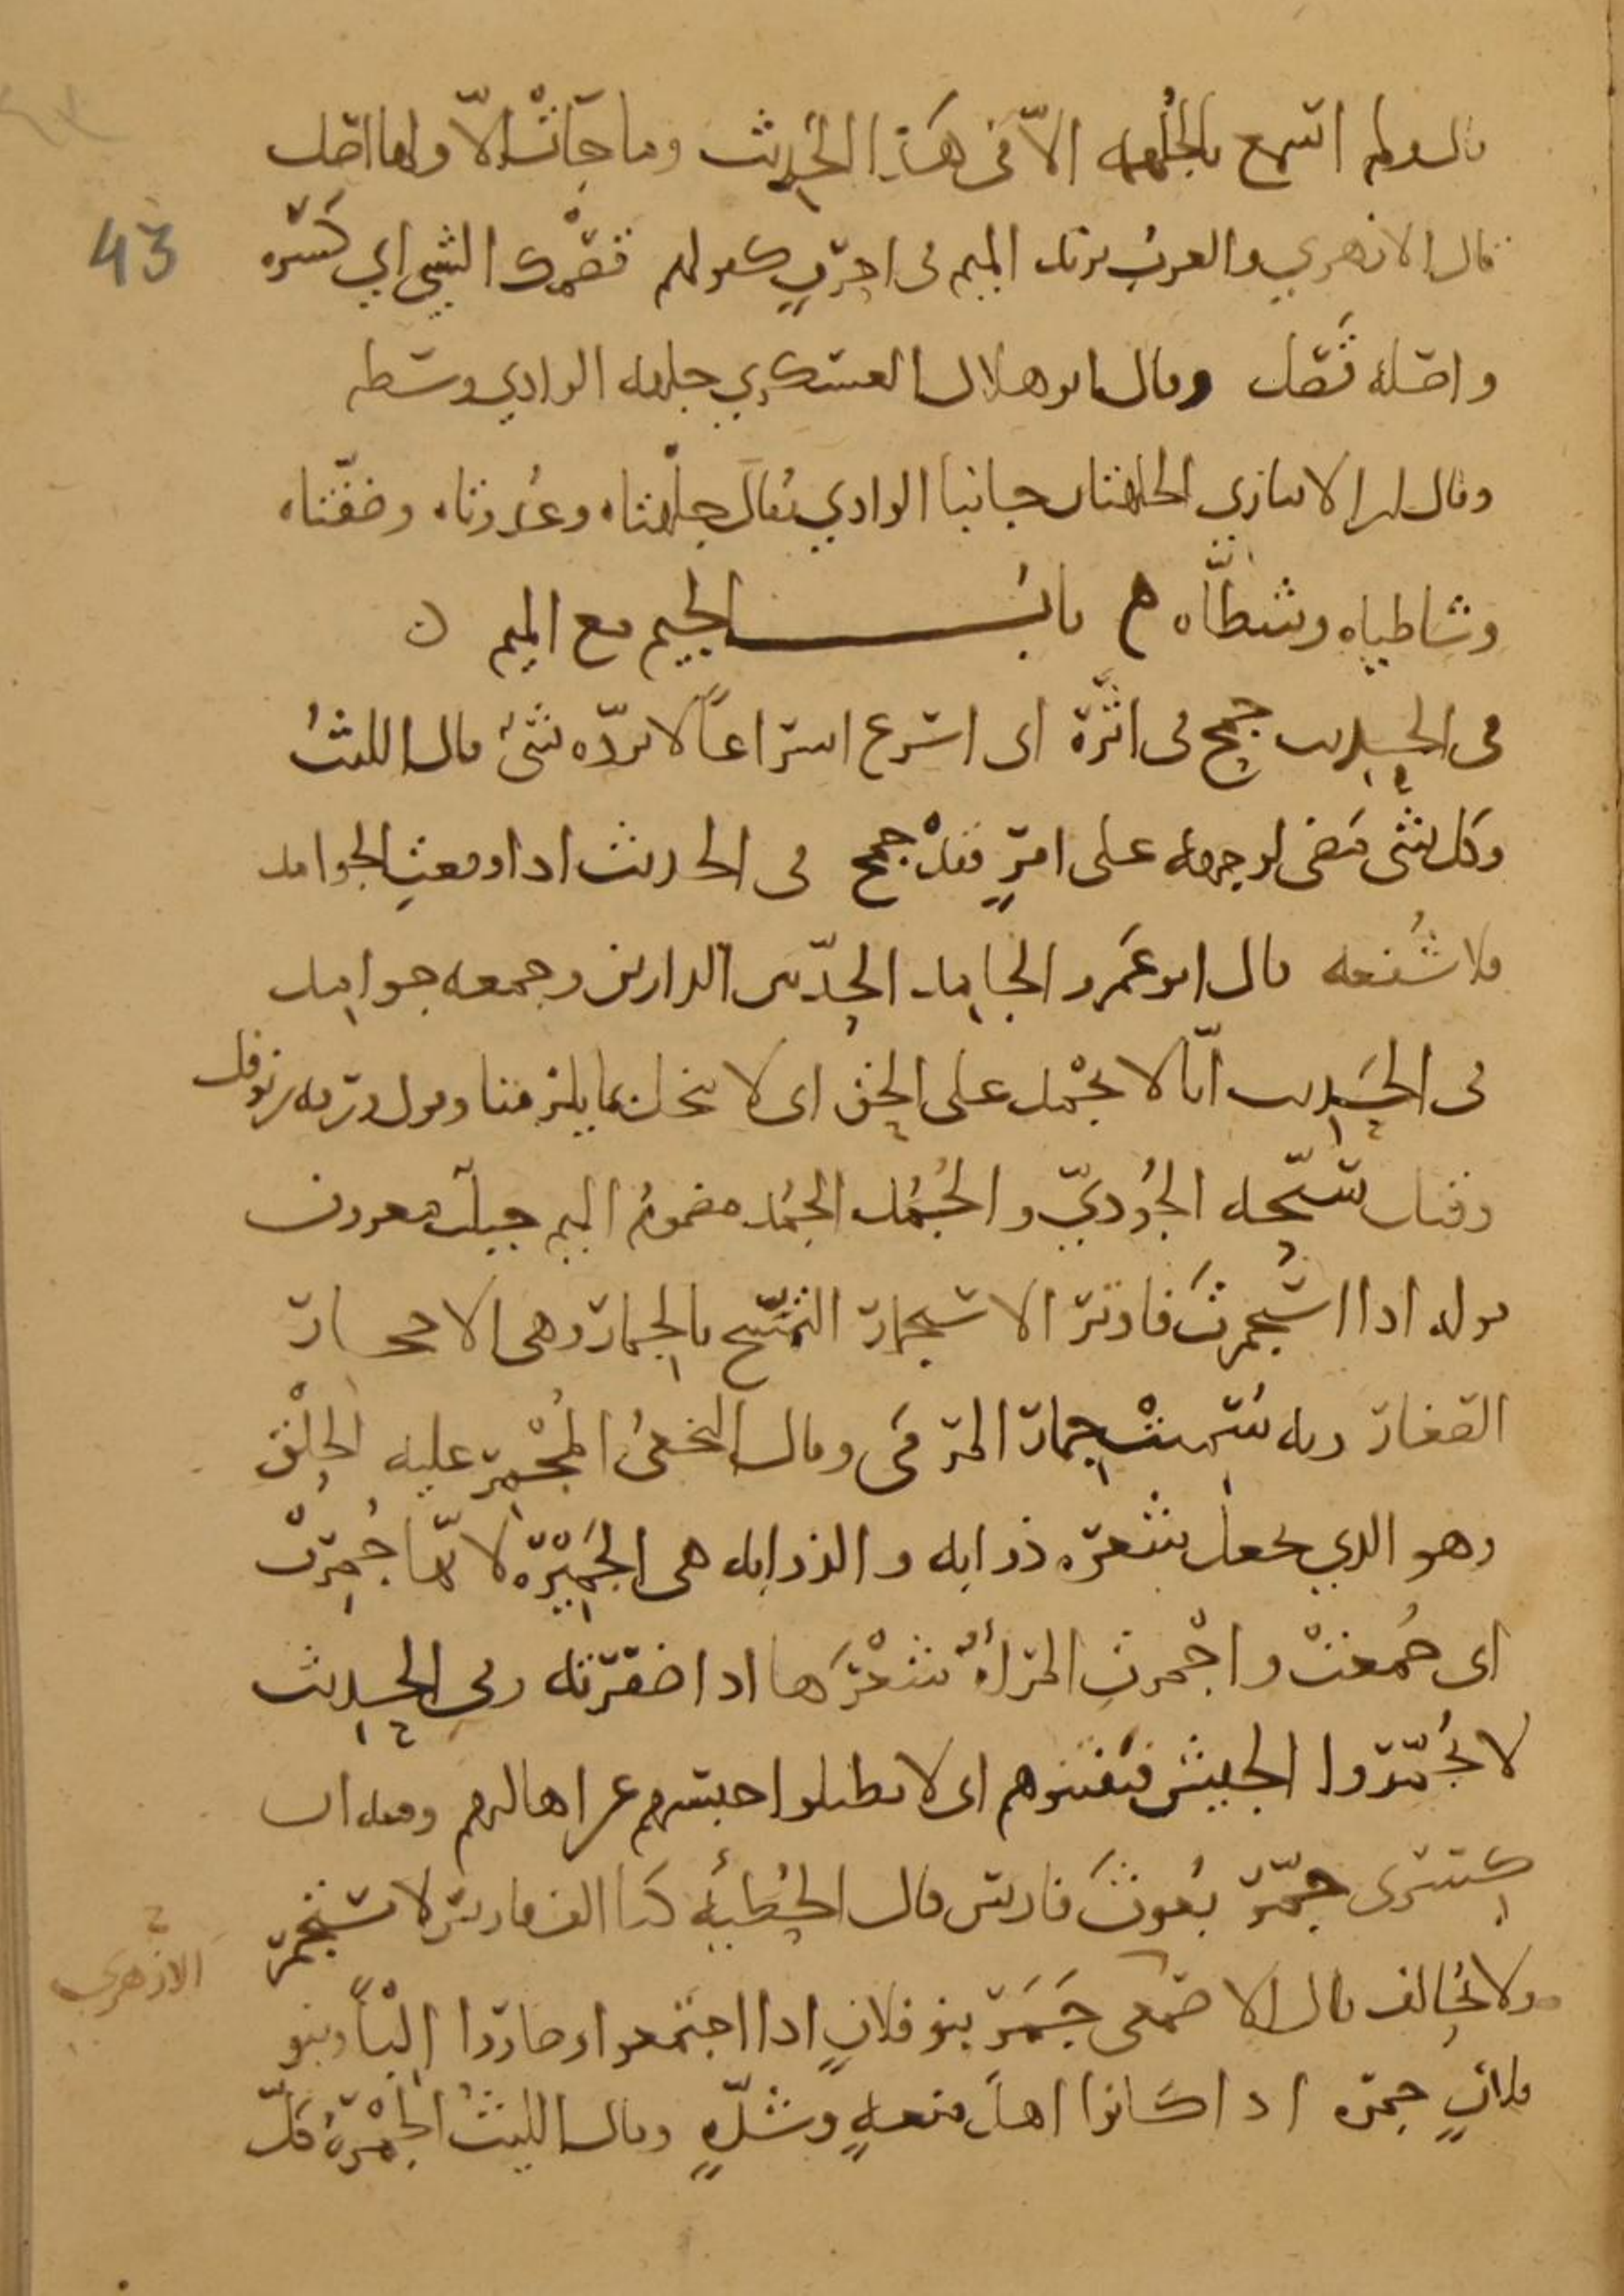 قال ولم اسمع بالجلهمة الّا في هَذا الحَدِيث وما جَآتْ الّا ولها اصل
43
قال الازهري والعربُ تزيد الميم في احرفٍ كقولهم قَصْمل الشي اي كسّره
واصله قَصَل وقال ابو هلال العسكري جلهة الوادي وسطه
وقال ابن الانباري الجلهتان جانبا الوادي يُقالُ جلْهتاه وعُدوتاه وضفّتاه
وشاطياه وشطّاه ه بابُ الجيم مع الميم
في الحديث جمح في اثَرَهِ اى اسرع اسراعاً لا يردّه شئ قال الليثُ
وكل شى مَضى لوجهه على امرٍ فقدْ جمح في الحديث اذا وقعتِ الجوامد
فلا شُفعه قال ابو عَمرو الجامِد الحِدّ بين الدارين وجمعه جوامِد
في الحَدِيث انّا لا نجْمُد على الحق اى لا نبخل بما يلزمنا وقول ورقه بن نوفل
وقبلنا سبّحه الجُوديّ والجُمُد الجُمُد مضمومُ الميم جبلٌ معروف
قوله اذا استجمرتَ فاوتر الاستجمار التمسّح بالجِمار وهي الاحجار
الصغار وبه سُمّيتْ جِمار الرمي وقال النخعيُ المُجْمِر عليه الحلْق
وهو الذي يجعل شعره ذوابه والذوابه هى الجَمِيْرَه لانّها جُمِرتْ
اى جُمعتْ واجْمرتِ المرأةُ شعْرَها اذا ضفرته وفي الحديث
لا تُجَمّروا الجيش فتفتنوهم اى لا تطيلوا حبسهم عن اهاليهم ومنه ان
كِسرى جمّر بُعوثَ فارس قال الحُطيئَه كنا الف فارس لا تستجمر
ولا تُحالف قال الاصمعى جَمَرَ بنو فلانٍ اذا اجتمعوا وصاروا اِلْباً وبنو
الازهري
فلانٍ جمره اذا كانوا اهلَ منعهٍ وشدّهٍ وقال الليثُ الجمْرةُ كلّ